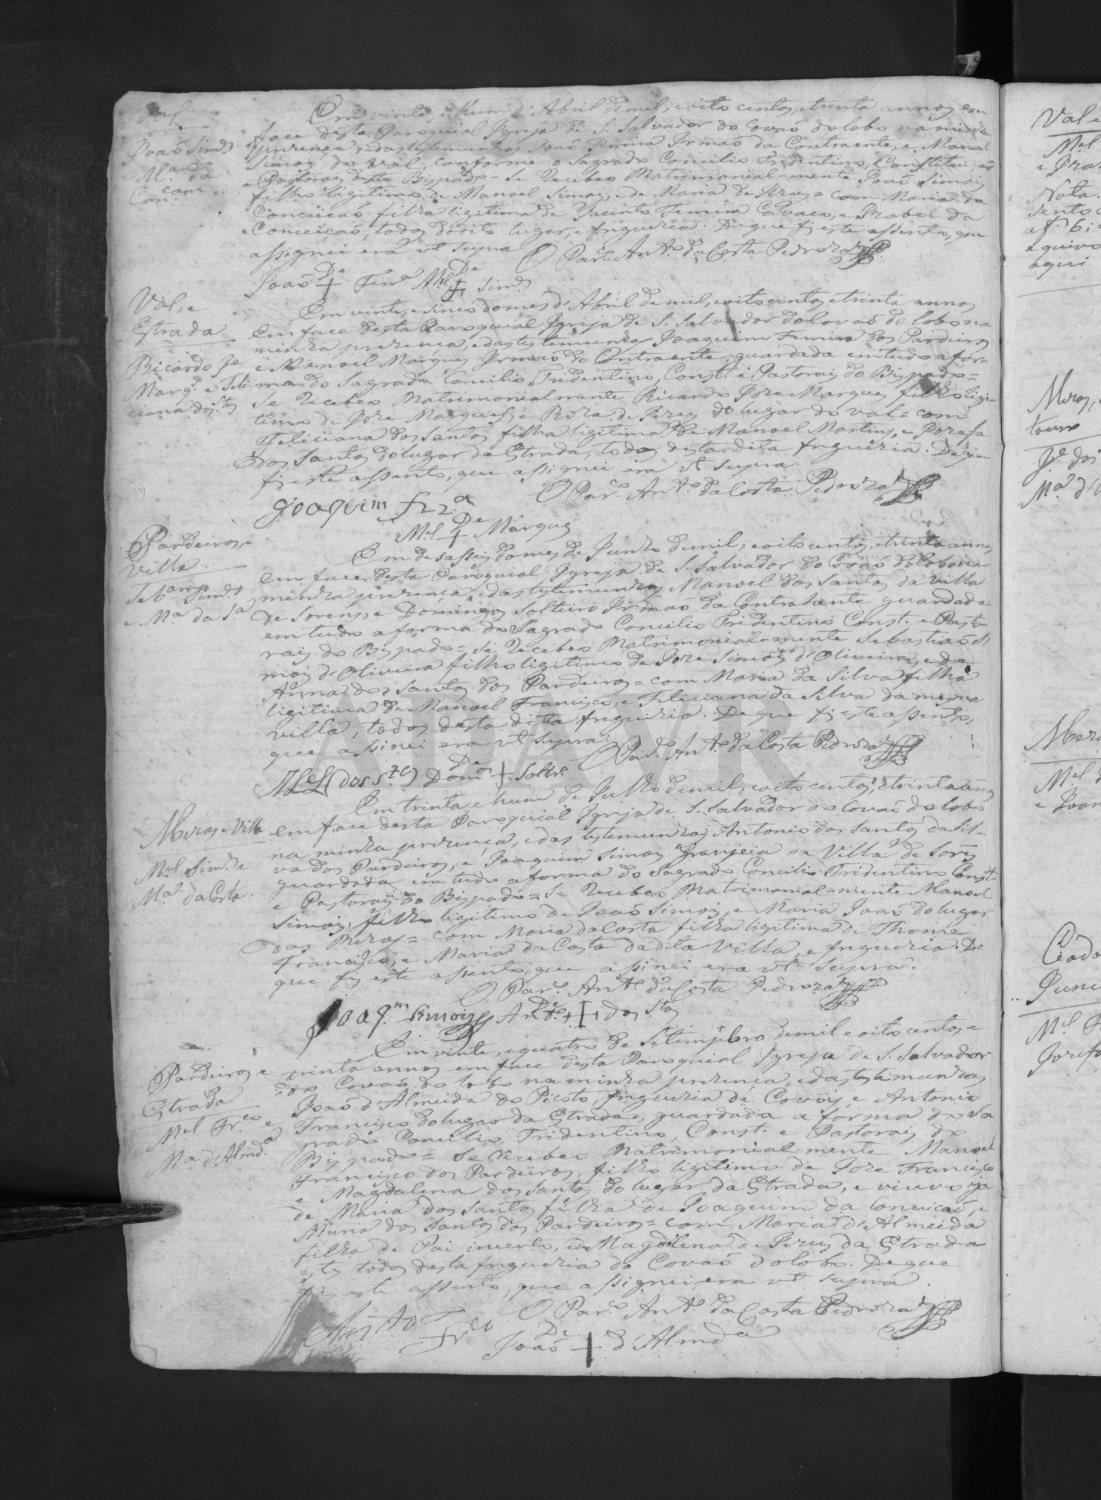 Val
João Sim.s
M.a da
Con.cam
Em vinte e hum d'Abril de mil, e oito centos, e trinta annos em
face desta Paroquial Igreja de S. Salvador do Covaõ do lobo na minha
prezença, e das testemunhas, João Ferreira Irmaõ da Contraente, e Manoel
Simois do Val, conforme o Sagrado Concilio Tridentino, Constituiçaõ
e Pastorais deste Bispado = se Recebeo Matrimonial-mente Joaõ Simois
filho legitimo de Manoel Simois, e de Maria de Jezus = com Maria da
Conceiçaõ filha legitima de Jacinto Ferreira Cavaco, e Izabel da
Conceiçaõ, todos do dito lugar, e freguezia. De que fiz este assento, que
assignei era ut supra
O Par.o Ant.o da Costa Pedroza
João De + Ferr.a M.el De + Sim.s
Val, e
Estrada
Ricardo Je
Marq.s e Feli
ciana dos S.tos
Em vinte, e sinco do mes d'Abril de mil, e oito centos, e trinta annos
em face desta Paroquial Igreja de S. Salvador do Covaõ do lobo na
minha prezença, e das testemunhas Joaquim Ferreira dos Pardeiros
e Manoel Marques Irmaõ do Contraente, guardada em tudo a for
ma do Sagrado Concilio Tridentino, Const. e Pastorais do Bispado =
se Recebeo Matrimonialmente Ricardo Joze Marques filho legi-
timo de Joze Marques, e Roza de Jezus do lugar do Val = com
Feliciana dos Santos filha legitima de Manoel Martins, e Jozefa
dos Santos do lugar da Estrada, todos desta dita freguezia. De que
fiz este assento, que assignei era ut supra
O Par.o Ant.o da Costa Pedroza
Joaquim Frz.a
M.el De + Marques
Pardeiros, e
Villa
Seb.am Sim.s
e M.a da S.a
Em desasseis do mes de Junho de mil, e oito centos, e trinta annos
em face desta Paroquial Igreja de S. Salvador do Covaõ do lobo na
minha prezença, e das testemunhas, Manoel dos Santos da Villa
de Sorens, e Domingos Solteiro Irmaõ da Contrahente guardada
em tudo a forma do Sagrado Concilio Tridentino Const. e Pasto
rais do Bispado = se Recebeo Matrimonial-mente Sebastiaõ Si
mois d'Oliveira filho legitimo de Joze Simois d'Oliveira, e de
Anna dos Santos dos Pardeiros = com Maria da Silva filha
legitima de Manoel Francisco, e Feliciana da Silva da mesma
villa, todos desta dita freguezia. De que fiz este assento,
que assinei era ut supra
O Par.o Ant.o da Costa Pedroza
M.el dos S.tos Dom.os De + Soltr.o
Mezas e Villa
M.el Sim.s e
M.a da Costa
Em trinta, e hum de Julho de mil, e oito centos, e trinta annos
em face desta Paroquial Igreja de S. Salvador do Covaõ do lobo
na minha prezença, e das testemunhas, Antonio dos Santos da Sil-
va dos Pardeiros, e Joaquim Simois Granjeia da Villa de Sorens
guardada em tudo a forma do Sagrado Concilio Tridentino Const.
e Pastorais do Bispado = se Recebeo Matrimonial-mente Manoel
Simois, filho legitimo de Joaõ Simois, e Maria Joaõ do lugar
das Mezas = com Maria da Costa filha legitima de Thome
Francisco, e Maria da Costa da dita Villa, e freguezia. De
que fiz este assento, que assinei era ut supra
O Par.o Ant.o da Costa Pedroza
Joaq.m Simois Ant.o De + dos S.tos
Pardeiros e
Estrada
M.el Fr.co e
M.a d'Almd.a
Em vinte, e quatro de Setembro de mil e oito centos, e
trinta annos em face desta Paroquial Igreja de S. Salvador
do Covaõ do lobo na minha prezença, e das testemunhas
Joaõ d'Almeida do Picoto, freguezia de Covois, e Antonio
Francisco do lugar da Estrada, guardada a forma do Sa
grado Concilio Tridentino, Const. e Pastorais do
Bispado = se Recebeo Matrimonial mente Manoel
Francisco dos Pardeiros, filho legitimo de Joze Francisco
e Magdalena dos Santos do lugar da Estrada, e viuvo ja
de Maria dos Santos, filha de Joaquim da Conceicaõ, e
Maria dos Santos dos Pardeiros = com Maria d'Almeida
filha de Pai incerto, e Magdalena de Jezus da Estrada
estes todos desta freguezia do Covaõ do lobo. De que
fiz este assento, que assignei era ut supra.
O Par.o Ant.o da Costa Pedroza
Anto Fr.co João De + d'Almd.a
ADAVR
Val e
M.el
Nota.
equivo
aqui
M.a d'O
M.el
Junc
M.el F
Jozefa